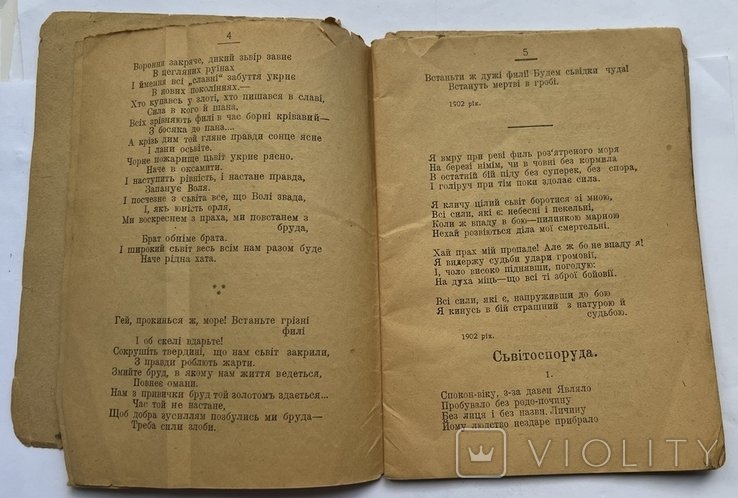 4
Вороння закряче, дикий зьвір завиє
В цегляних руїнах
І ймення всі „славні" забуття укриє
В нових поколіннях.—
Хто купавсь у злоті, хто пишався в славі,
Сила в кого й шана,
Всіх зрівняють филі в час борні крівавий—
З босяка до пана....
А крізь дим той гляне правди сонце ясне
І лани осьвіте.
Чорне пожарище цьвіт укриє рясно.
Наче в оксамити.
І наступить рівність, і настане правда,
Запанує Воля.
І посчезне з сьвіта все, що Волі звада,
І, якь юність орля,
Ми воскреснем з праха, ми повстанем з
бруда,
Брат обніме брата.
І широкий сьвіт весь всім нам разом буде
Наче рідна хата.
Гей, прокинься ж, море! Встаньте грізні
филі
І об скелі вдарьте!
Сокрушіть твердині, що нам сьвіт закрили,
З правди роблють жарти.
Змийте бруд, в якому нам життя ведеться,
Повнее омани.
Нам з привички бруд той золотом здається...
Час той не настане,
Щоб добра зусиллям позбулись ми бруда—
Треба сили злоби.
5
Встаньти ж дужі филі! Будем сьвідки чуда!
Встануть мертві в гробі.
1902 рік.
Я вмру при реві филь роз'ятреного моря
На березі німім, чи в човні без кормила
В останній бій піду без суперек, без спора,
І голіруч при тім поки здолає сила.
Я кличу цілий сьвіт боротися зі мною,
Всі сили, які є: небесні і пекельні,
Коли ж впаду в бою—пилинкою марною
Нехай розвіються діла мої смертельні.
Хай прах мій пропаде! Але ж бо не впаду я!
Я видержу судьби удари громовії,
І, чоло високо піднявши, погодую:
На духа міць—що всі ті зброї бойовії.
Всі сили, які є, напруживши до бою
Я кинусь в бій страшний з натурой й
судьбою.
1902 рік.
Сьвітоспоруда.
1.
Споконь-віку, з-за давен Являло
Пробувало без родо-почину
Без лиця і без назвн. Личину
Йому людство нездаре прибрало
VIOLITY